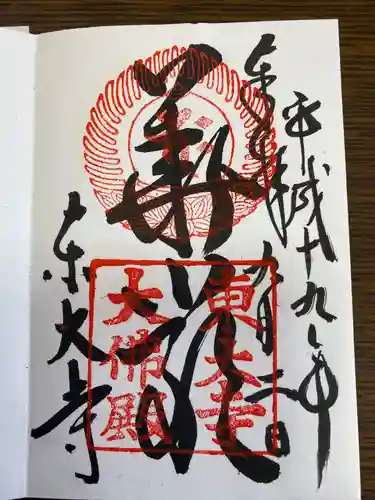 奉拝
平成十九年
八月二日
華厳
東大寺
東大寺
大佛殿